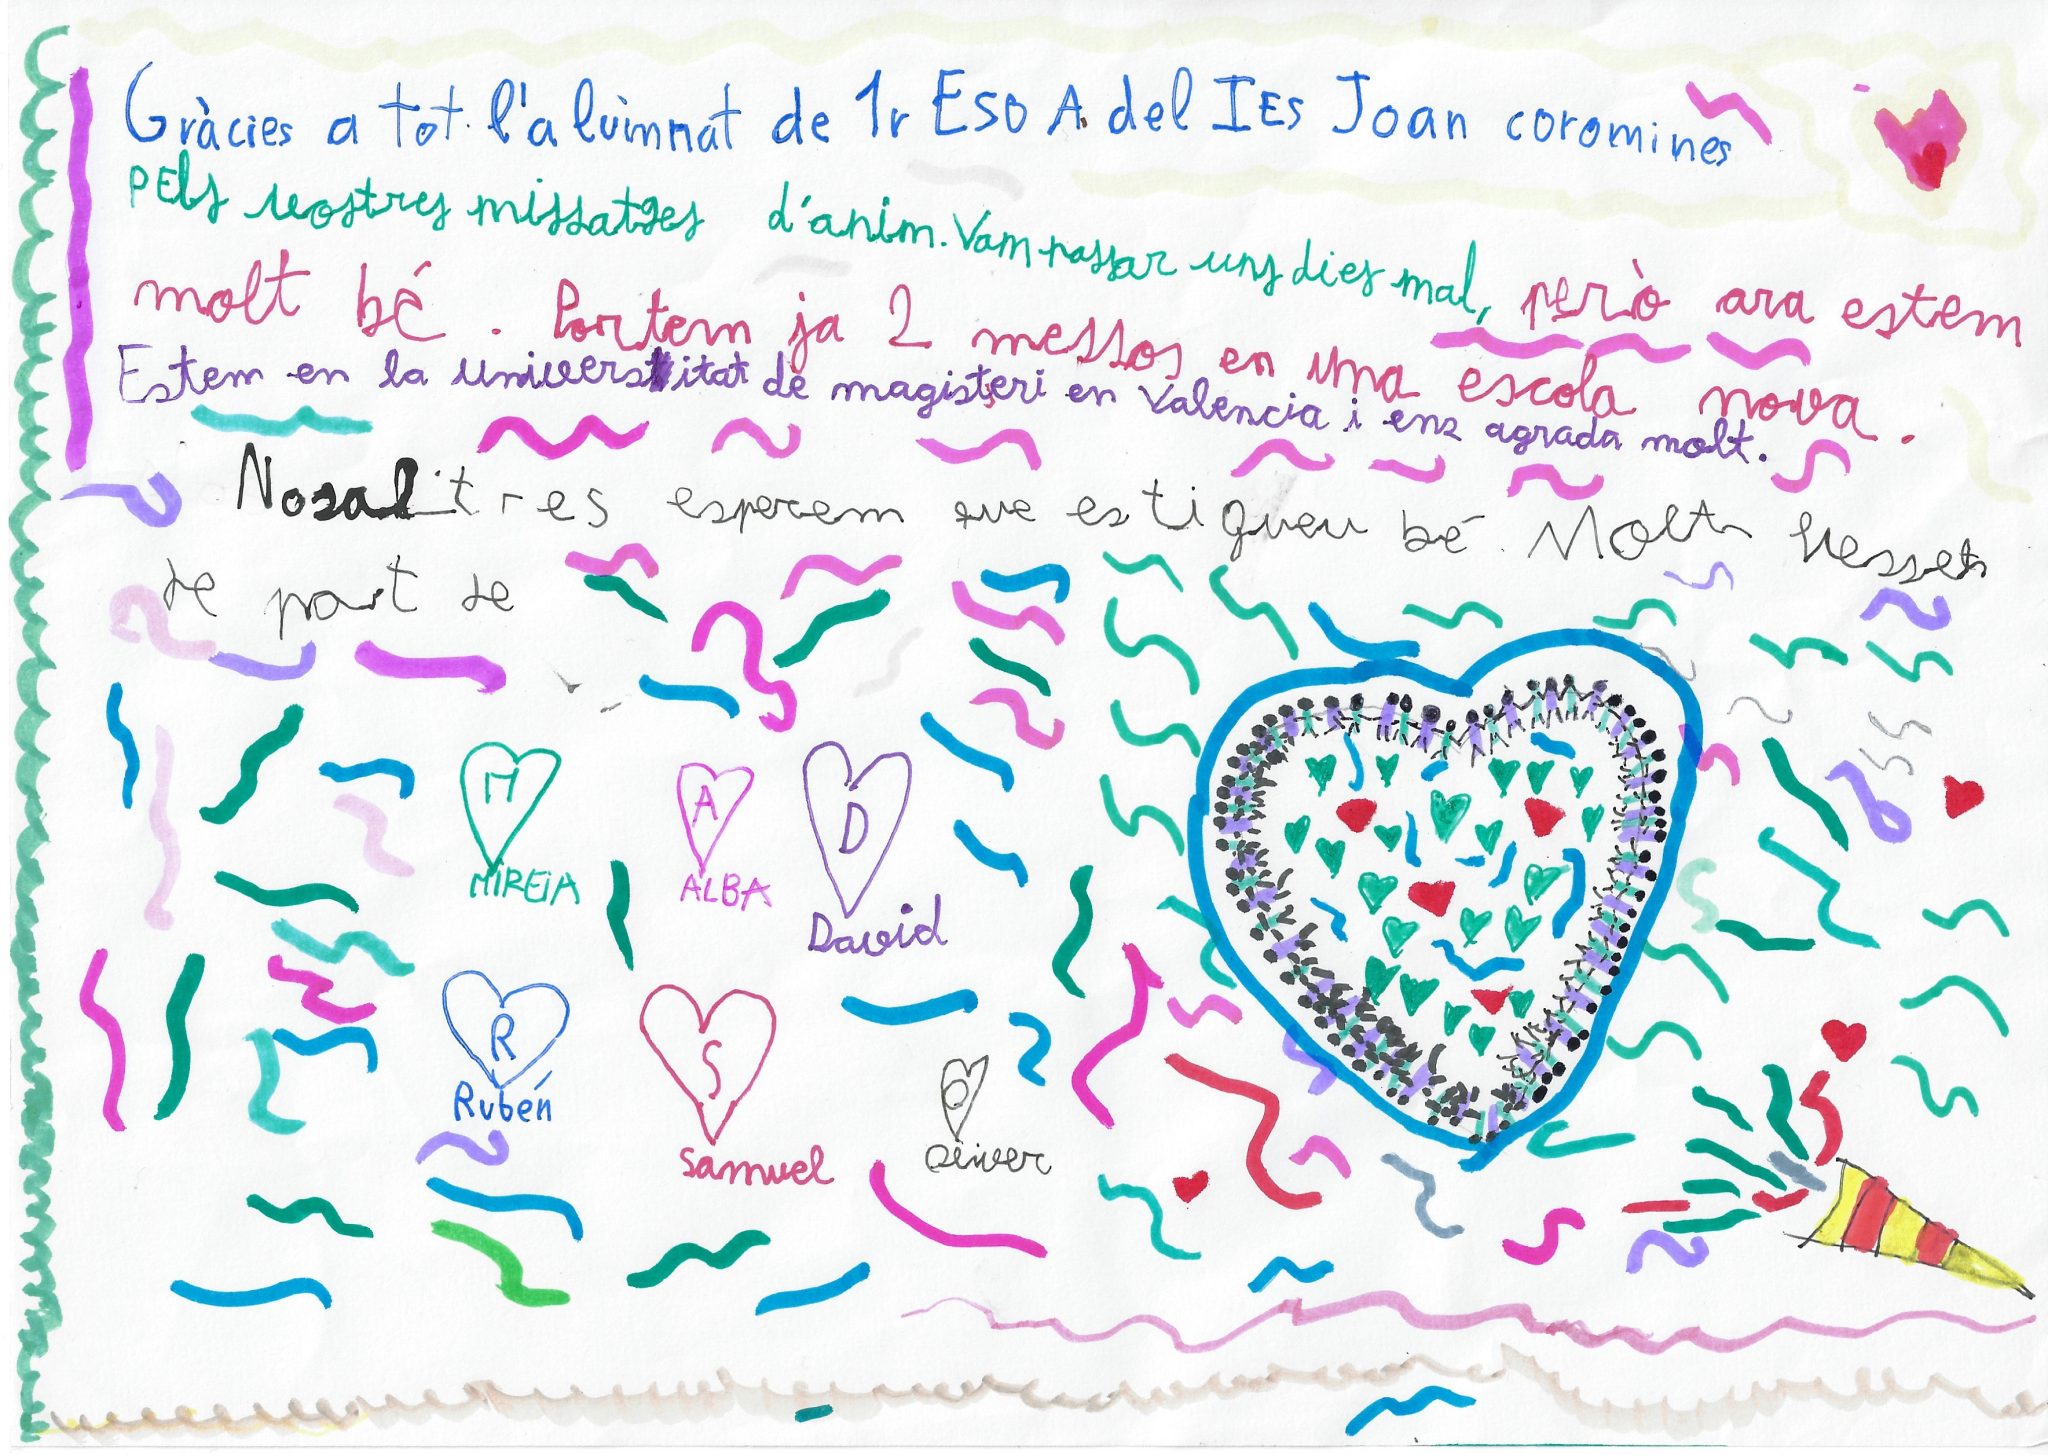 Gràcies a tot l'alumnat de 1r ESO A del IES Joan coromines
pels vostres missatges d'anim. Vam passar uns dies mal, però ara estem
molt bé. Portem ja 2 messos en una escola nova.
Estem en la universitat de magisteri en Valencia i ens agrada molt.
Nosaltres esperem que estigueu bé. Molts bessets
de part de
M A D
MIREIA ALBA David
R S O
Rubén Samuel Oliver